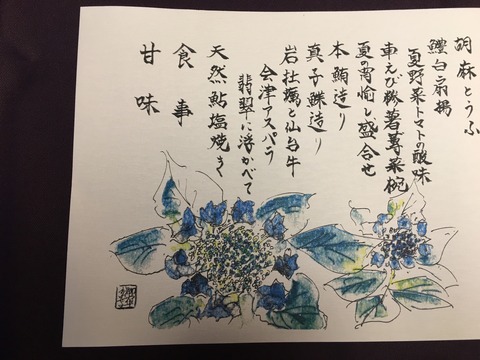 胡麻とうふ
鱧白扇揚
夏野菜トマトの酸味
車えび糝薯蓴菜椀
夏の宵愉し盛合せ
本鮪造り
真子鰈造り
岩牡蠣と仙台牛
会津アスパラ
翡翠に浮かべて
天然鮎塩焼き
食事
甘味